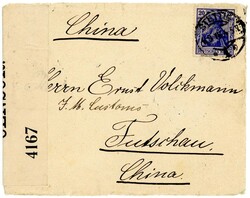 China
Herrn Ernst Volkmann
I. M. Customs
Futschau.
China.
4167
20